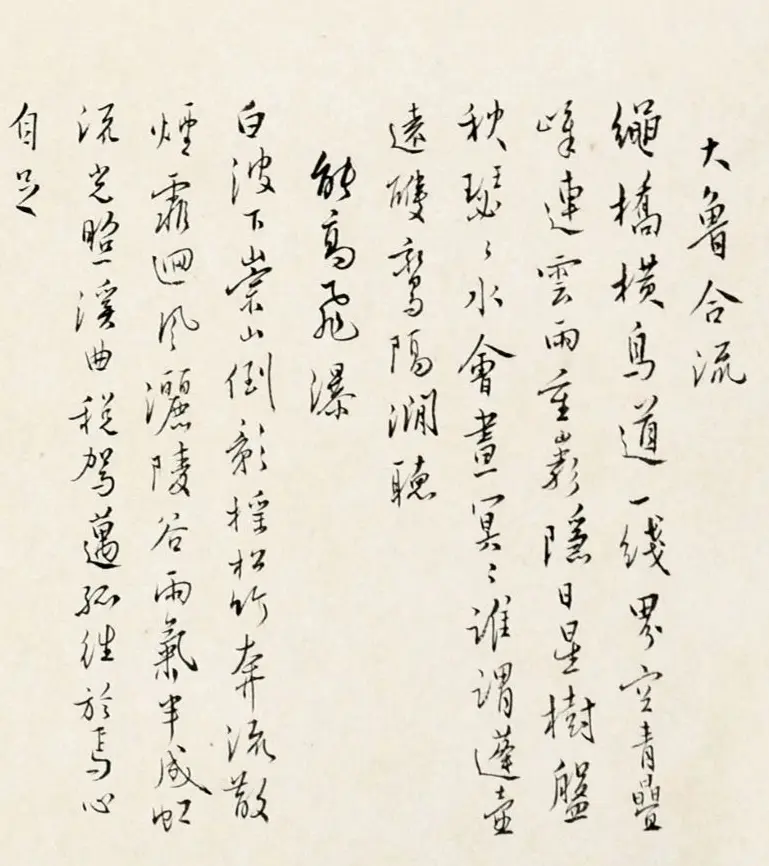 大魯合流
繩橋橫鳥道一綫界空青疊
嶂連雲雨重巖隱日星樹盤
秋瑟〻水會晝冥〻誰謂蓬壺
遠雙鸞隔澗聽
能高飛瀑
白波下崇山倒影搖松竹奔流散
煙霏迴風灑陵谷雨氣半成虹
流光照溪曲税駕邁孤往於焉心
自足